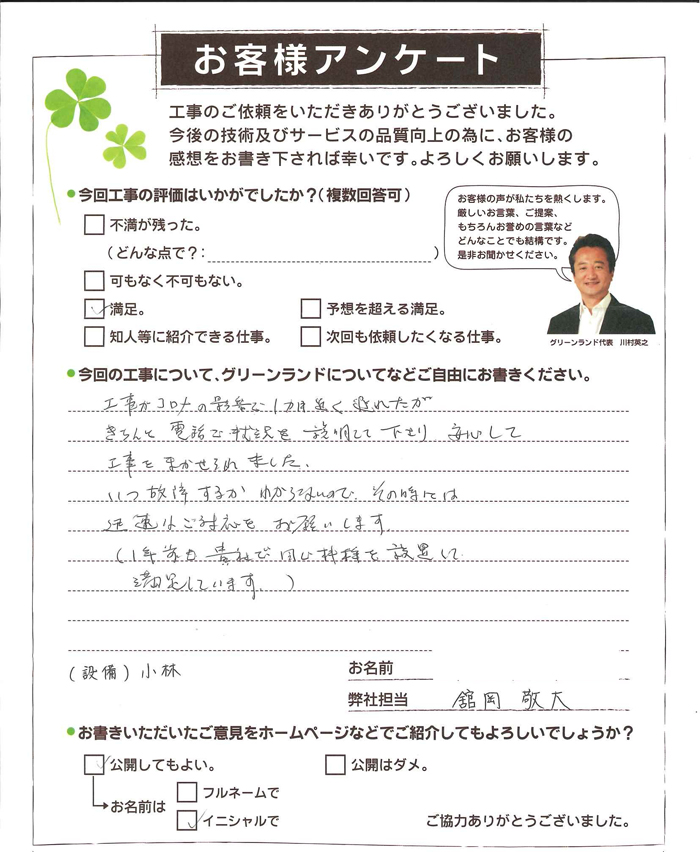 お客様アンケート
工事のご依頼をいただきありがとうございました。
今後の技術及びサービスの品質向上の為に、お客様の
感想をお書き下されば幸いです。よろしくお願いします。
今回工事の評価はいかがでしたか？（複数回答可）
不満が残った。
（どんな点で？：　）
可もなく不可もない。
満足。
予想を超える満足。
知人等に紹介できる仕事。
次回も依頼したくなる仕事。
お客様の声が私たちを熱くします。
厳しいお言葉、ご提案、
もちろんお誉めの言葉など
どんなことでも結構です。
是非お聞かせください。
グリーンランド代表　川村英之
今回の工事について、グリーンランドについてなどご自由にお書きください。
工事がコロナの影響で1カ月近く遅れたが
きちんと電話で状況を説明して下さり 安心して
工事をまかせられました。
いつ故障するか わからないので、その時には
迅速なご対応を お願いします
(1年前力 貴社で同じ機種を設置して
満足しています。)
(設備) 小林
お名前
弊社担当　舘岡 敬大
お書きいただいたご意見をホームページなどでご紹介してもよろしいでしょうか？
公開してもよい。
公開はダメ。
お名前は
フルネームで
イニシャルで
ご協力ありがとうございました。